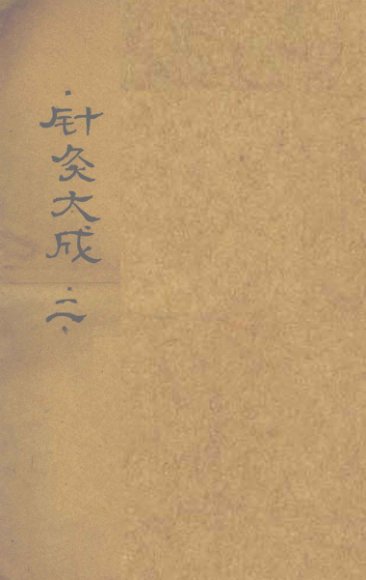 ·针灸大成·二·